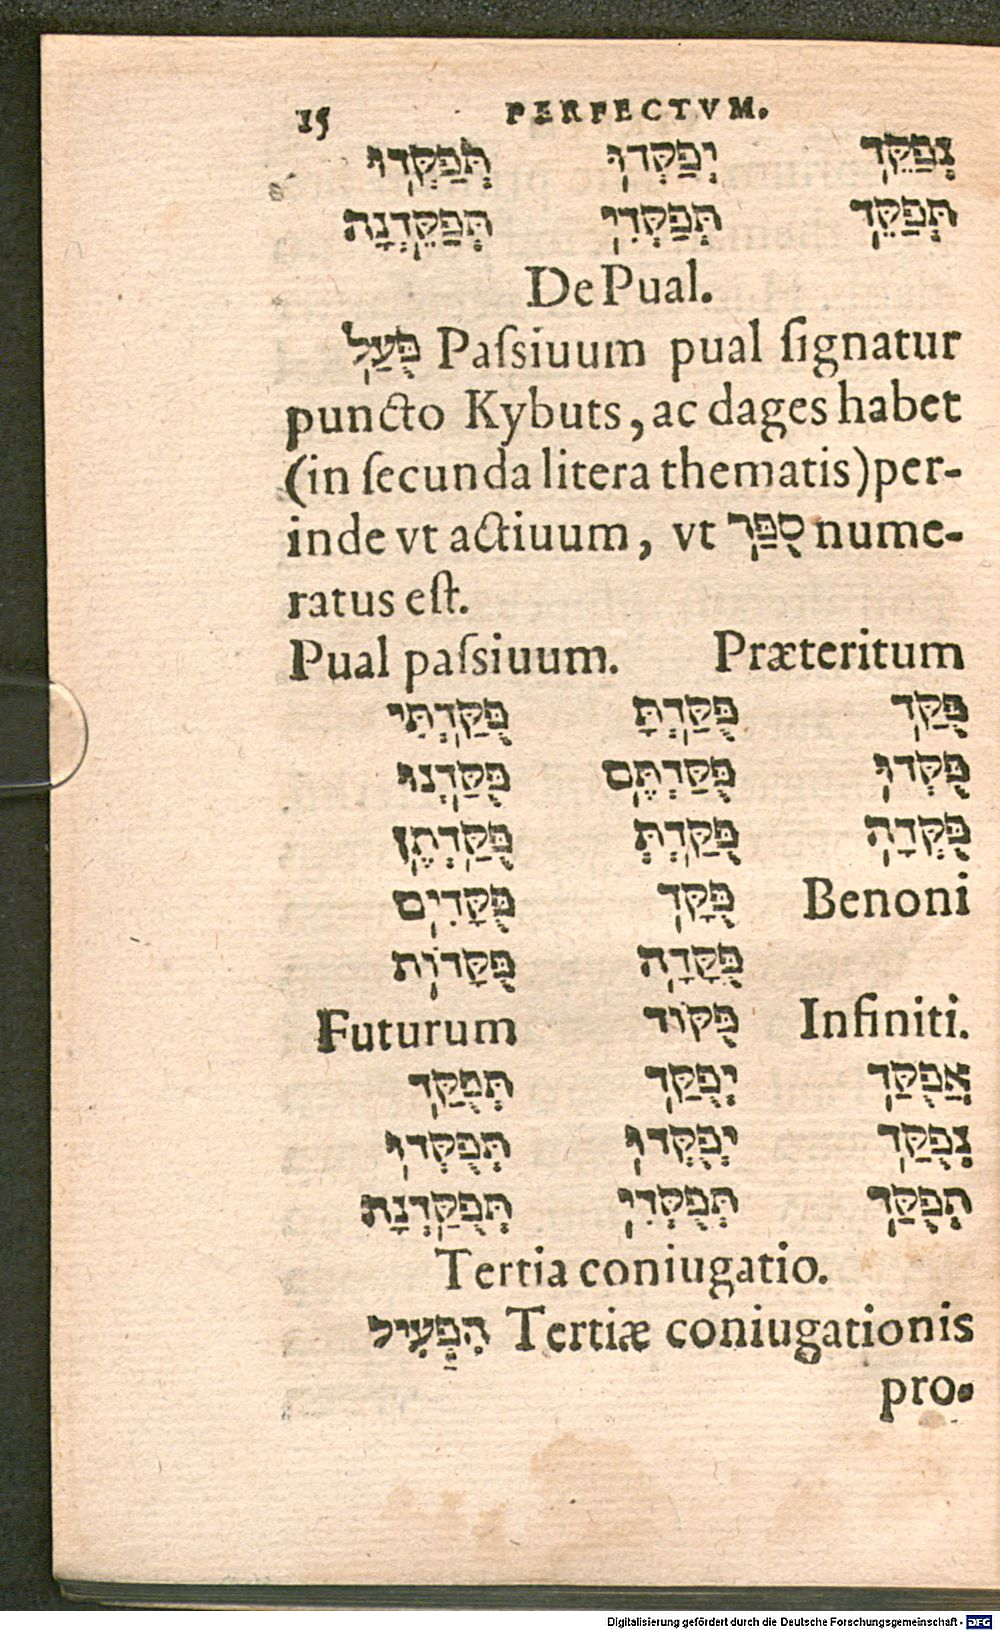 15 PERFECTVM.
נְפַקֵּד יְפַקְּדוּ תְּפַקְּדוּ
תְּפַקֵּד תְּפַקְּדִי תְּפַקֵּדְנָה
De Pual.
פֻּעַל Paſsiuum pual ſignatur
puncto Kybuts, ac dages habet
(in ſecunda litera thematis) per-
inde vt actiuum, vt סֻפַּר nume-
ratus eſt.
Pual paſsiuum. Præteritum
פֻּקַּד פֻּקַּדְתָּ פֻּקַּדְתִּי
פֻּקְּדוּ פֻּקַּדְתֶּם פֻּקַּדְנוּ
פֻּקְּדָה פֻּקַּדְתְּ פֻּקַּדְתֶּן
Benoni פֻּקָּד פֻּקָּדִים
פֻּקָּדָה פֻּקָּדוֹת
Infiniti. פֻּקּוֹד Futurum
אֲפֻקַּד יְפֻקַּד תְּפֻקַּד
נְפֻקַּד יְפֻקְּדוּ תְּפֻקְּדוּ
תְּפֻקַּד תְּפֻקְּדִי תְּפֻקַּדְנָה
Tertia coniugatio.
הִפְעִיל Tertiæ coniugationis
pro-
Digitalisierung gefördert durch die Deutsche Forschungsgemeinschaft - DFG